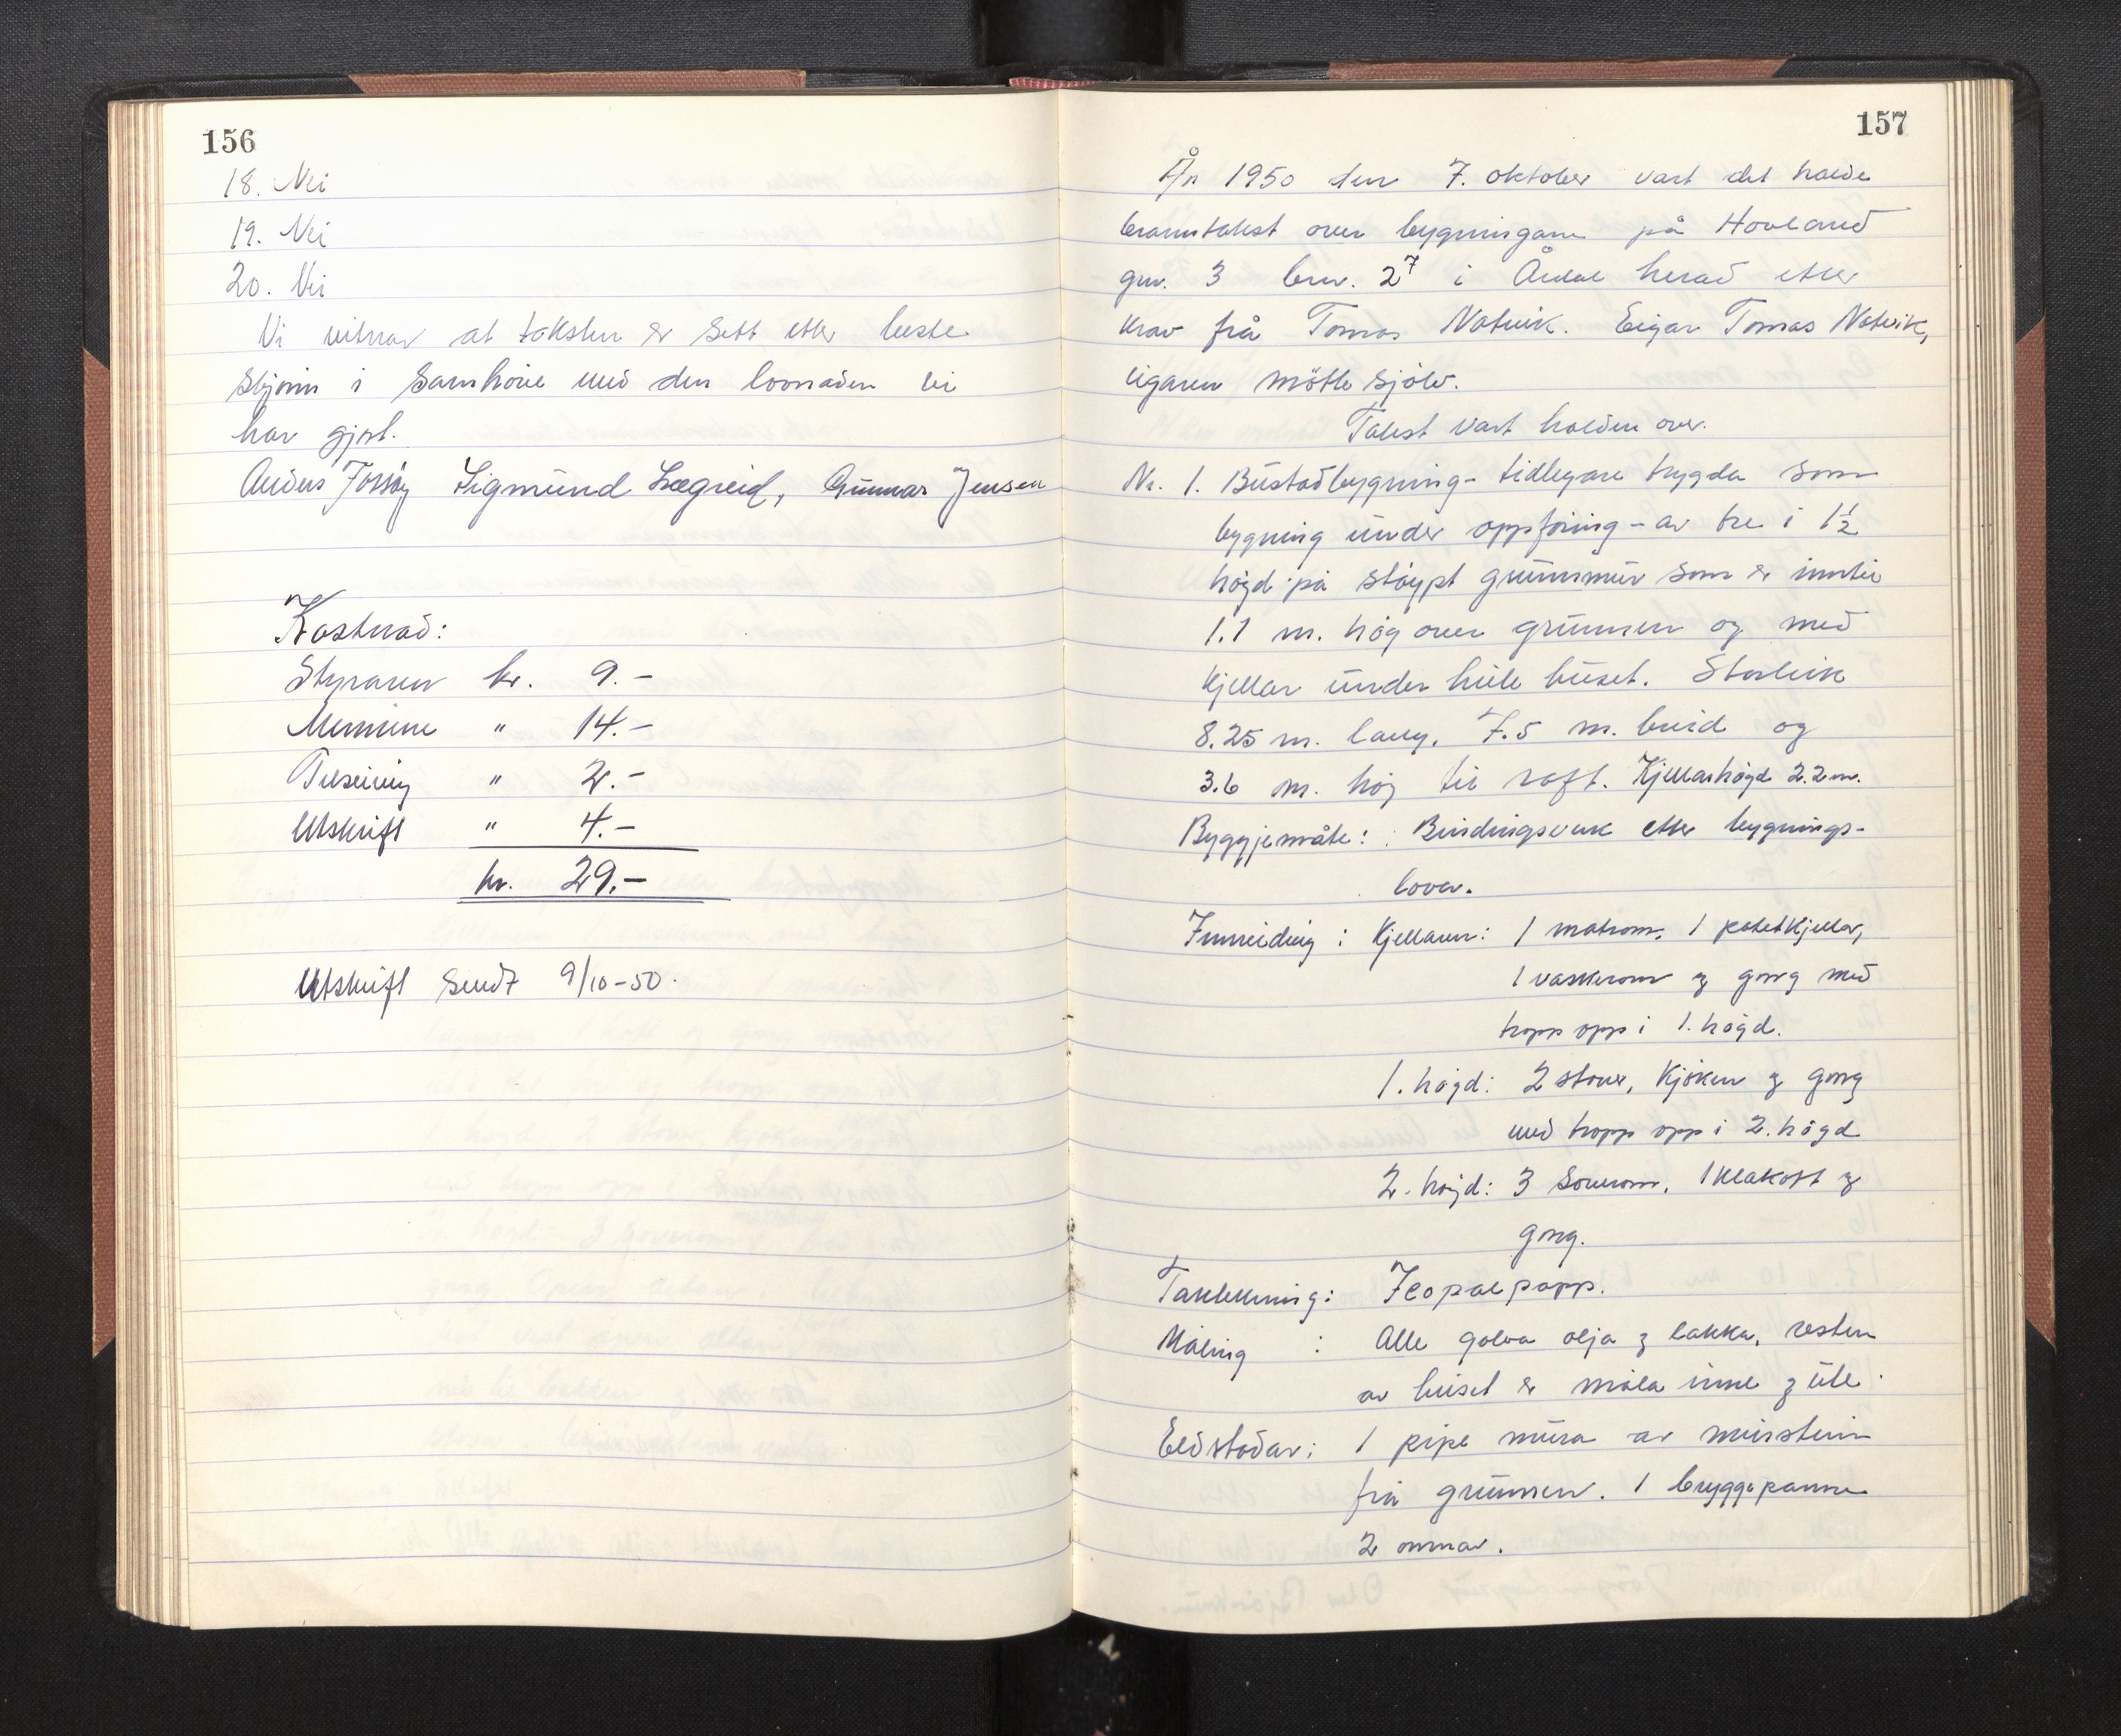 156
18. Nei
19. Nei
20. Nei
Vi vitnar at taksten er sett etter beste
skjönn i samhöve med den lovnaden vi
har gjort.
Sigmund Lægreid, Gunnar Jensen
Kostnad:
Styraren kr. 9.-
Mennene " 14.-
Tilseiing " 2.-
Utskrift " 4.-
kr. 29.-
Utskrift sendt 9/10-50.
157
År 1950 den 7. oktober vart det halde
branntakst over bygningane på Hovland
gnr. 3 bnr. 27 i Årdal herad etter
krav frå Tomas Natvik. Eigar Tomas Natvik,
eigaren møtte sjølv.
Takst vart halden over.
Nr. 1. Bustadbygning - tidlegare trygda som
bygning under oppföring - av tre i 1½
högd på stöypt grunnmur som er inntil
1.1 m. hög over grunnen og med
kjellar under heile huset. Storleik
8.25 m. lang, 7.5 m. breid og
3.6 m. hög til raft. Kjellarhögd 2.2 m.
Byggjemåte: Bindingsverk etter bygnings-
lover.
Innreiding: Kjellaren: 1 matrom, 1 potetkjellar,
1 vaskerom og gang med
tropp opp i 1. högd.
1. högd: 2 stover, kjöken og gang
med tropp opp i 2. högd
2. högd: 3 soverom, 1 klekott og
gang.
Taktekking: Icopalpapp.
Måling : Alle golva olja og lakka, resten
av huset er måla inne og ute.
Eldstadar: 1 pipe mura av murstein
frå grunnen. 1 bryggepanne
2 omnar.